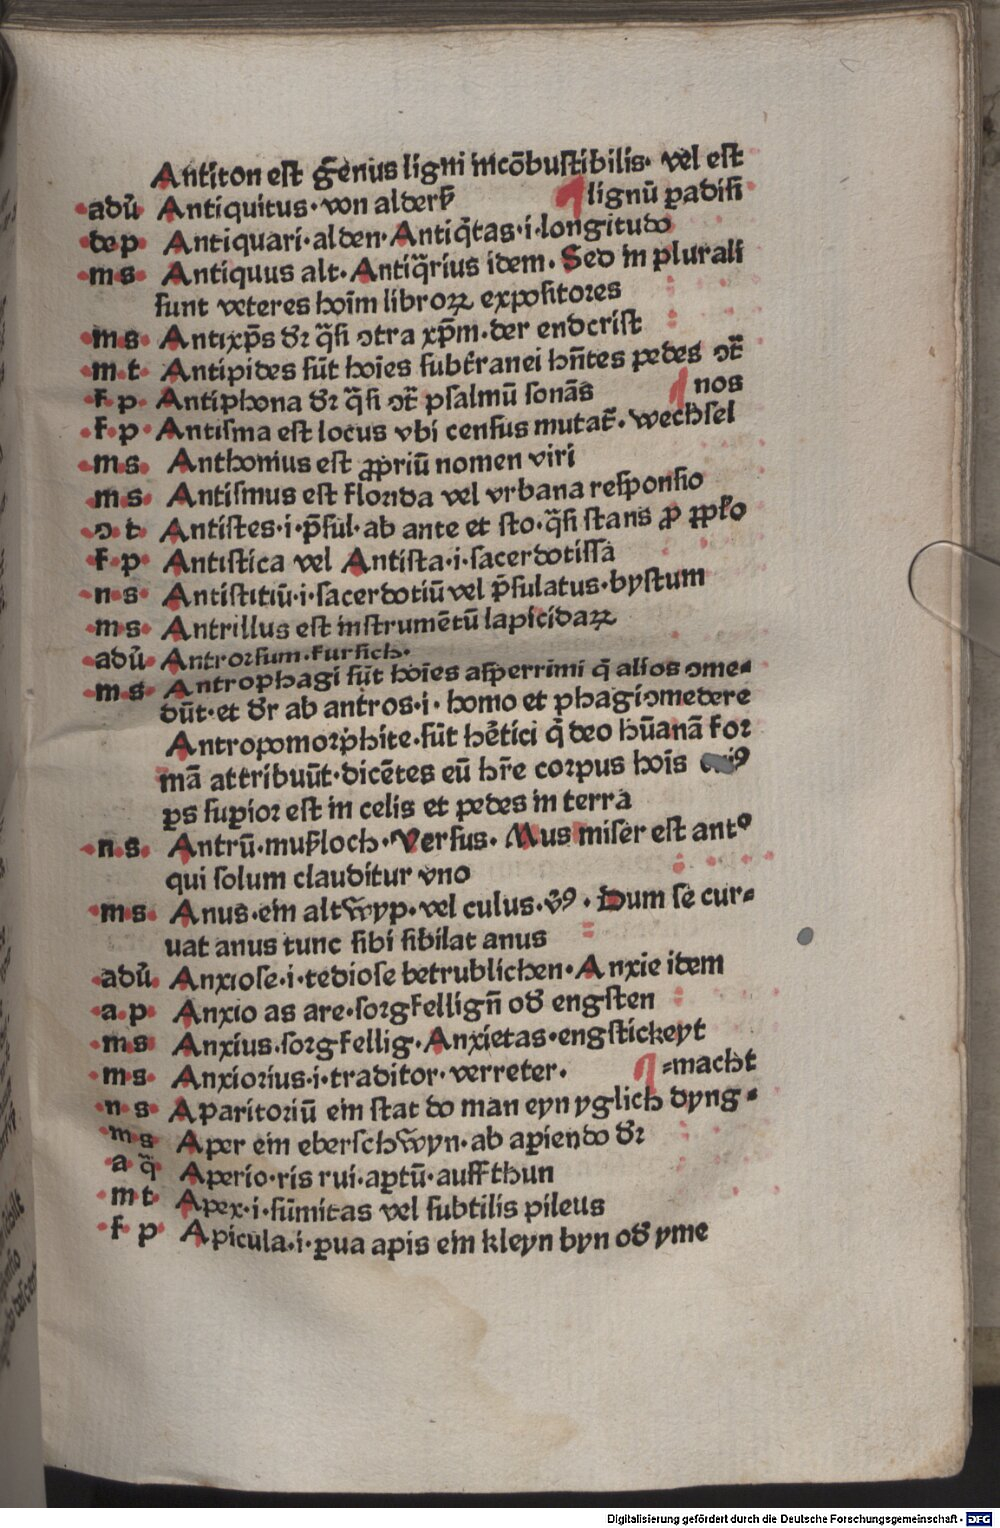 Antiton est gēnius ligni incōbustibilis· vel est
adū Antiquitus·von alders̄ ¶lignū ꝑadisi
de p Antiquari·alden·Antiq̄tas·i·longitudo
m s Antiquus alt·Antiq̄rius idem·Sed in plurali
sunt veteres hoīm libroꝝ expositores
m s Antixp̄s dr̄ q̄si ↄtra xp̄m·der endcrist
m t Antipides sūt hoīes subt̄ranei hn̄tes pedes ↄt̄
f p Antiphona dr̄ q̄si ↄt̄ psalmū sonās ¶nos
f p Antisma est locus vbi census mutat̄·wechsel
m s Anthonius est ꝓpriū nomen viri
m s Antismus est florida vel vrbana responsio
ↄ t Antistes·i·p̄sul·ab ante et sto·q̄si stans ꝓ ppl̄o
f p Antistica vel Antista·i·sacerdotissa
n s Antistitiū·i·sacerdotiū vel p̄sulatus·bystum
m s Antrillus est instrumētū lapicidaꝝ
adū Antrorsum·fursich·
m s Antrophagi sūt hoīes asperrimi q̄ alios ↄme⸗
dūt·et dr̄ ab antros·i·homo et phagi ↄmedere
Antropomorphite·sūt hētici q̄ deo hūanā for
mā attribuūt·dicētes eū hr̄e corpus hoīs
ꝑs supior est in celis et pedes in terra
n s Antrū·mußloch·Versus·Mus miser est antº
qui solum clauditur vno
m s Anus·ein alt wyp·vel culus·v̄ꝰ·Dum se cur⸗
uat anus tunc sibi sibilat anus
adū Anxiose·i·tediose betrublichen·Anxie idem
a p Anxio as are·sorgfellign̄ od̄ engsten
m s Anxius·sorgfellig·Anxietas·engstickeyt
m s Anxiorius·i·traditor·verreter· ¶⸗macht
n s Aparitoriū ein stat do man eyn yglich dyng⸗
m s Aper ein eberschwyn·ab apiendo dr̄
a q̄ Aperio·ris rui·aptū·auffthun
m t Apex·i·sūmitas vel subtilis pileus
f p Apicula·i·ꝑua apis ein kleyn byn od̄ yme
Digitalisierung gefördert durch die Deutsche Forschungsgemeinschaft - DFG